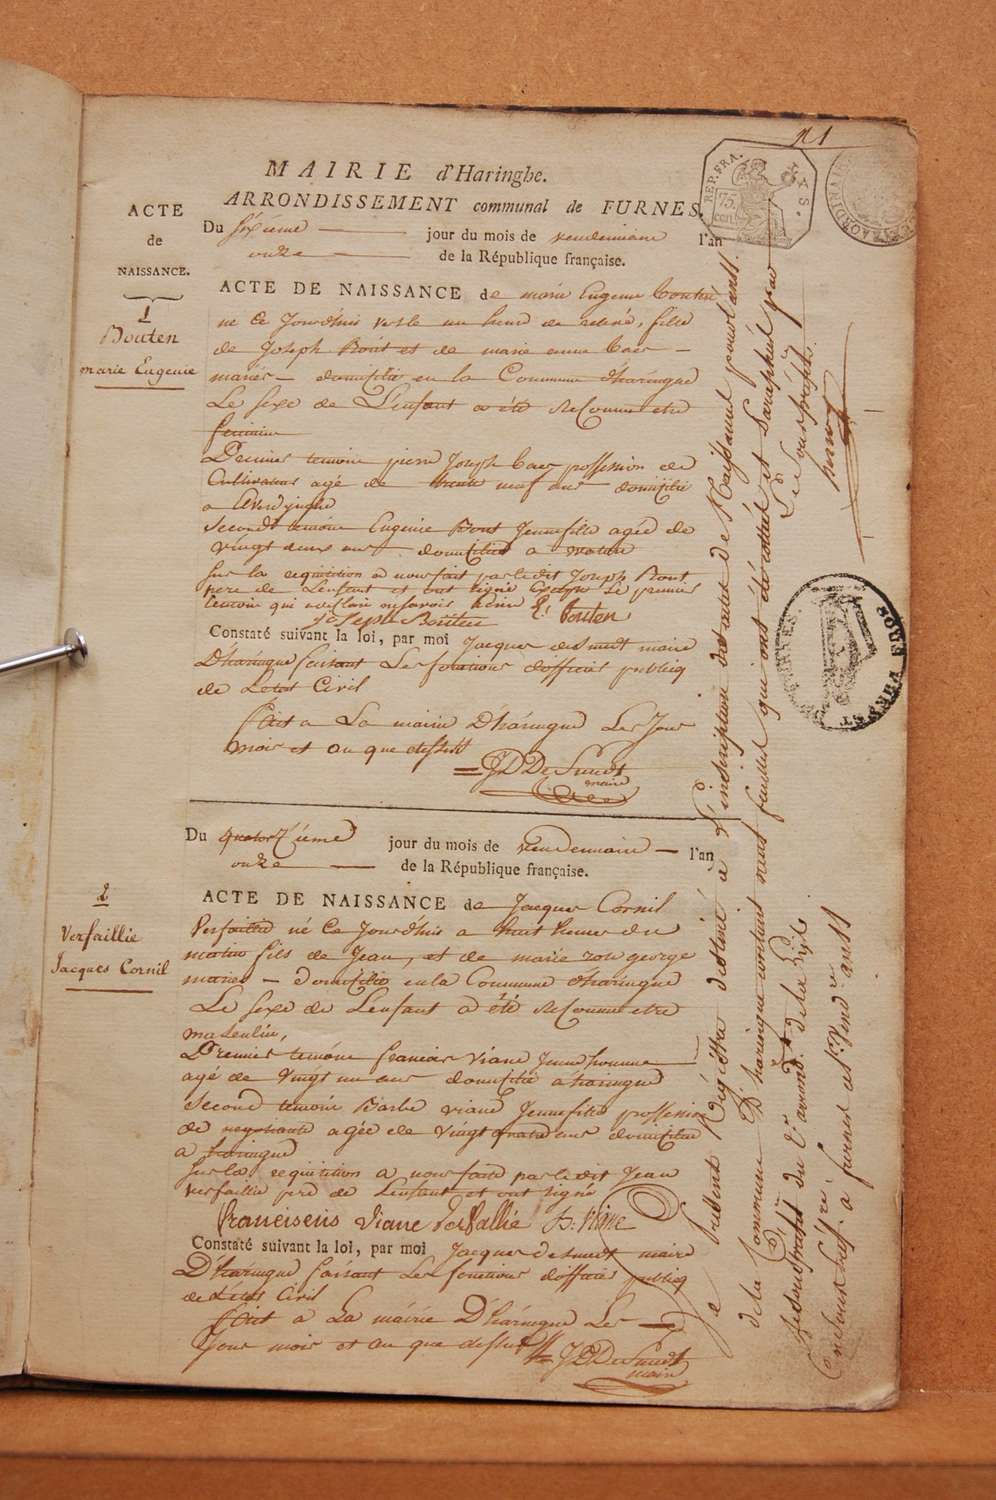 n 1
MAIRIE d'Haringhe.
ARRONDISSEMENT communal de FURNES.
REP. FRA.
75
cen.
ACTE
de
NAISSANCE.
Du sixieme jour du mois de vendemiaire l'an
onze de la République française.
1
Bouten
marie Eugenie
ACTE DE NAISSANCE de marie Eugenie Bouten
né Ce Jourdhuis vers le une heure de relevé, fille
de Joseph Bout et de marie anne Caes
mariés domicilié en la Commune dharingue
Le sexe de L'enfant a été Reconnu etre
feminin
Premier temoin pierre Joseph Caes possession de
Cultivateur agé de trente neuf ans domicilié
a
Second temoin Eugenie Bout Jeune fille agée de
vingt deux ans domicilié a watoue
Sur la requisition a nous fait par ledit Joseph Bout
pere de Lenfant et ont signé excepte le premier
temoin qui
Joseph Bouten E: Bouten
Constaté suivant la loi, par moi Jacques desmedt maire
Dharingue faisant Les fonctions dofficier publiq
de Letat Civil
fait a La mairie Dharingue Les Jour
mois et an que dessus
JD DeSmedt
maire
Du quatorzieme jour du mois de vendemiaire l'an
onze de la République française.
2
Verfaillie
Jacques Cornil
ACTE DE NAISSANCE de Jacques Cornil
Verfaillie né Ce Jourdhuis a huit heures du
matin fils de Jean, et de marie rose george
mariés domicilié en la Commune dharingue
Le sexe de Lenfant a été Reconnu etre
masculin,
Premier temoin francois viane Jeune homme
agé de vingt un ans domicilié a haringue
Second temoin Barbe viane Jeune fille possession
de negotiante agée de vingt quatre ans domicilié
a haringue
Sur la requisition a nous fait par ledit Jean
verfaillie pere de Lenfant et ont signé
franciscus viane verfallie B. viane
Constaté suivant la loi, par moi Jacques desmedt maire
Dharingue faisant Les fonctions dofficier publiq
de Létat Civil
fait a La mairie Dharingue Les
Jour mois et an que dessus
JD DeSmedt
maire
Le present Registre destiné a L'inscription des actes de Naissance pour l'an 11
de la Commune D'haringue contenant neuf feuillets qui ont été cottés et paraphés par
Le sousprefet du 2e arrond.t de la Lys
a furnes ce 1er Vend.re an 11
Le Sousprefet